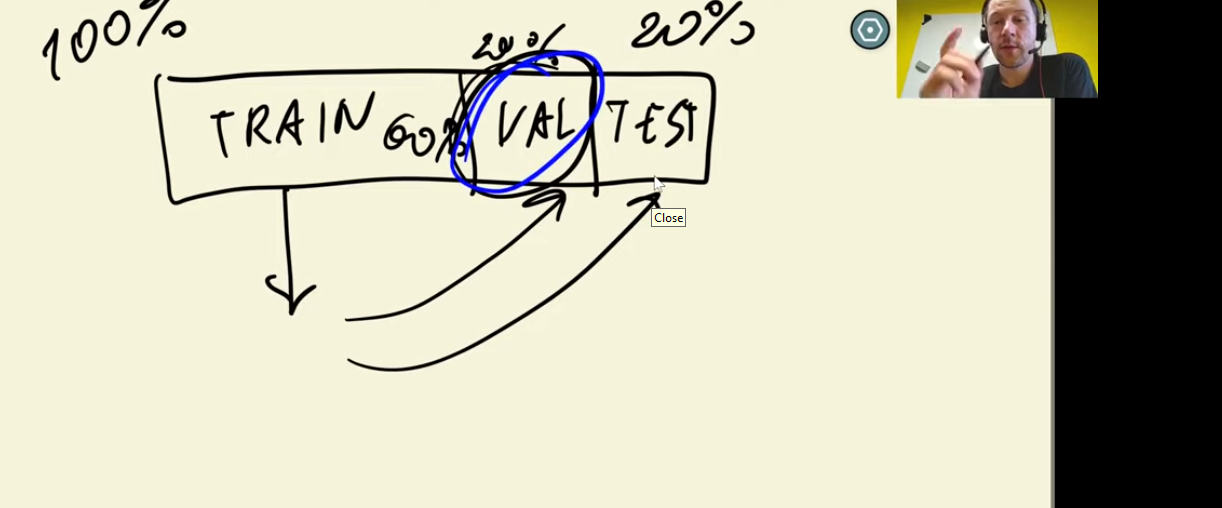 100%
20%
20%
TRAIN 60% VAL TEST
Close